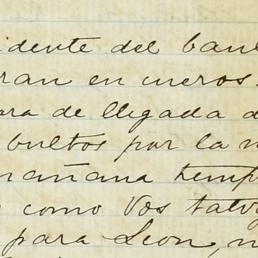 idente del ban
ran en cueros.
ora de llegada d
bultos por la m
mañana temp
como Vos talvz
para Leon, n